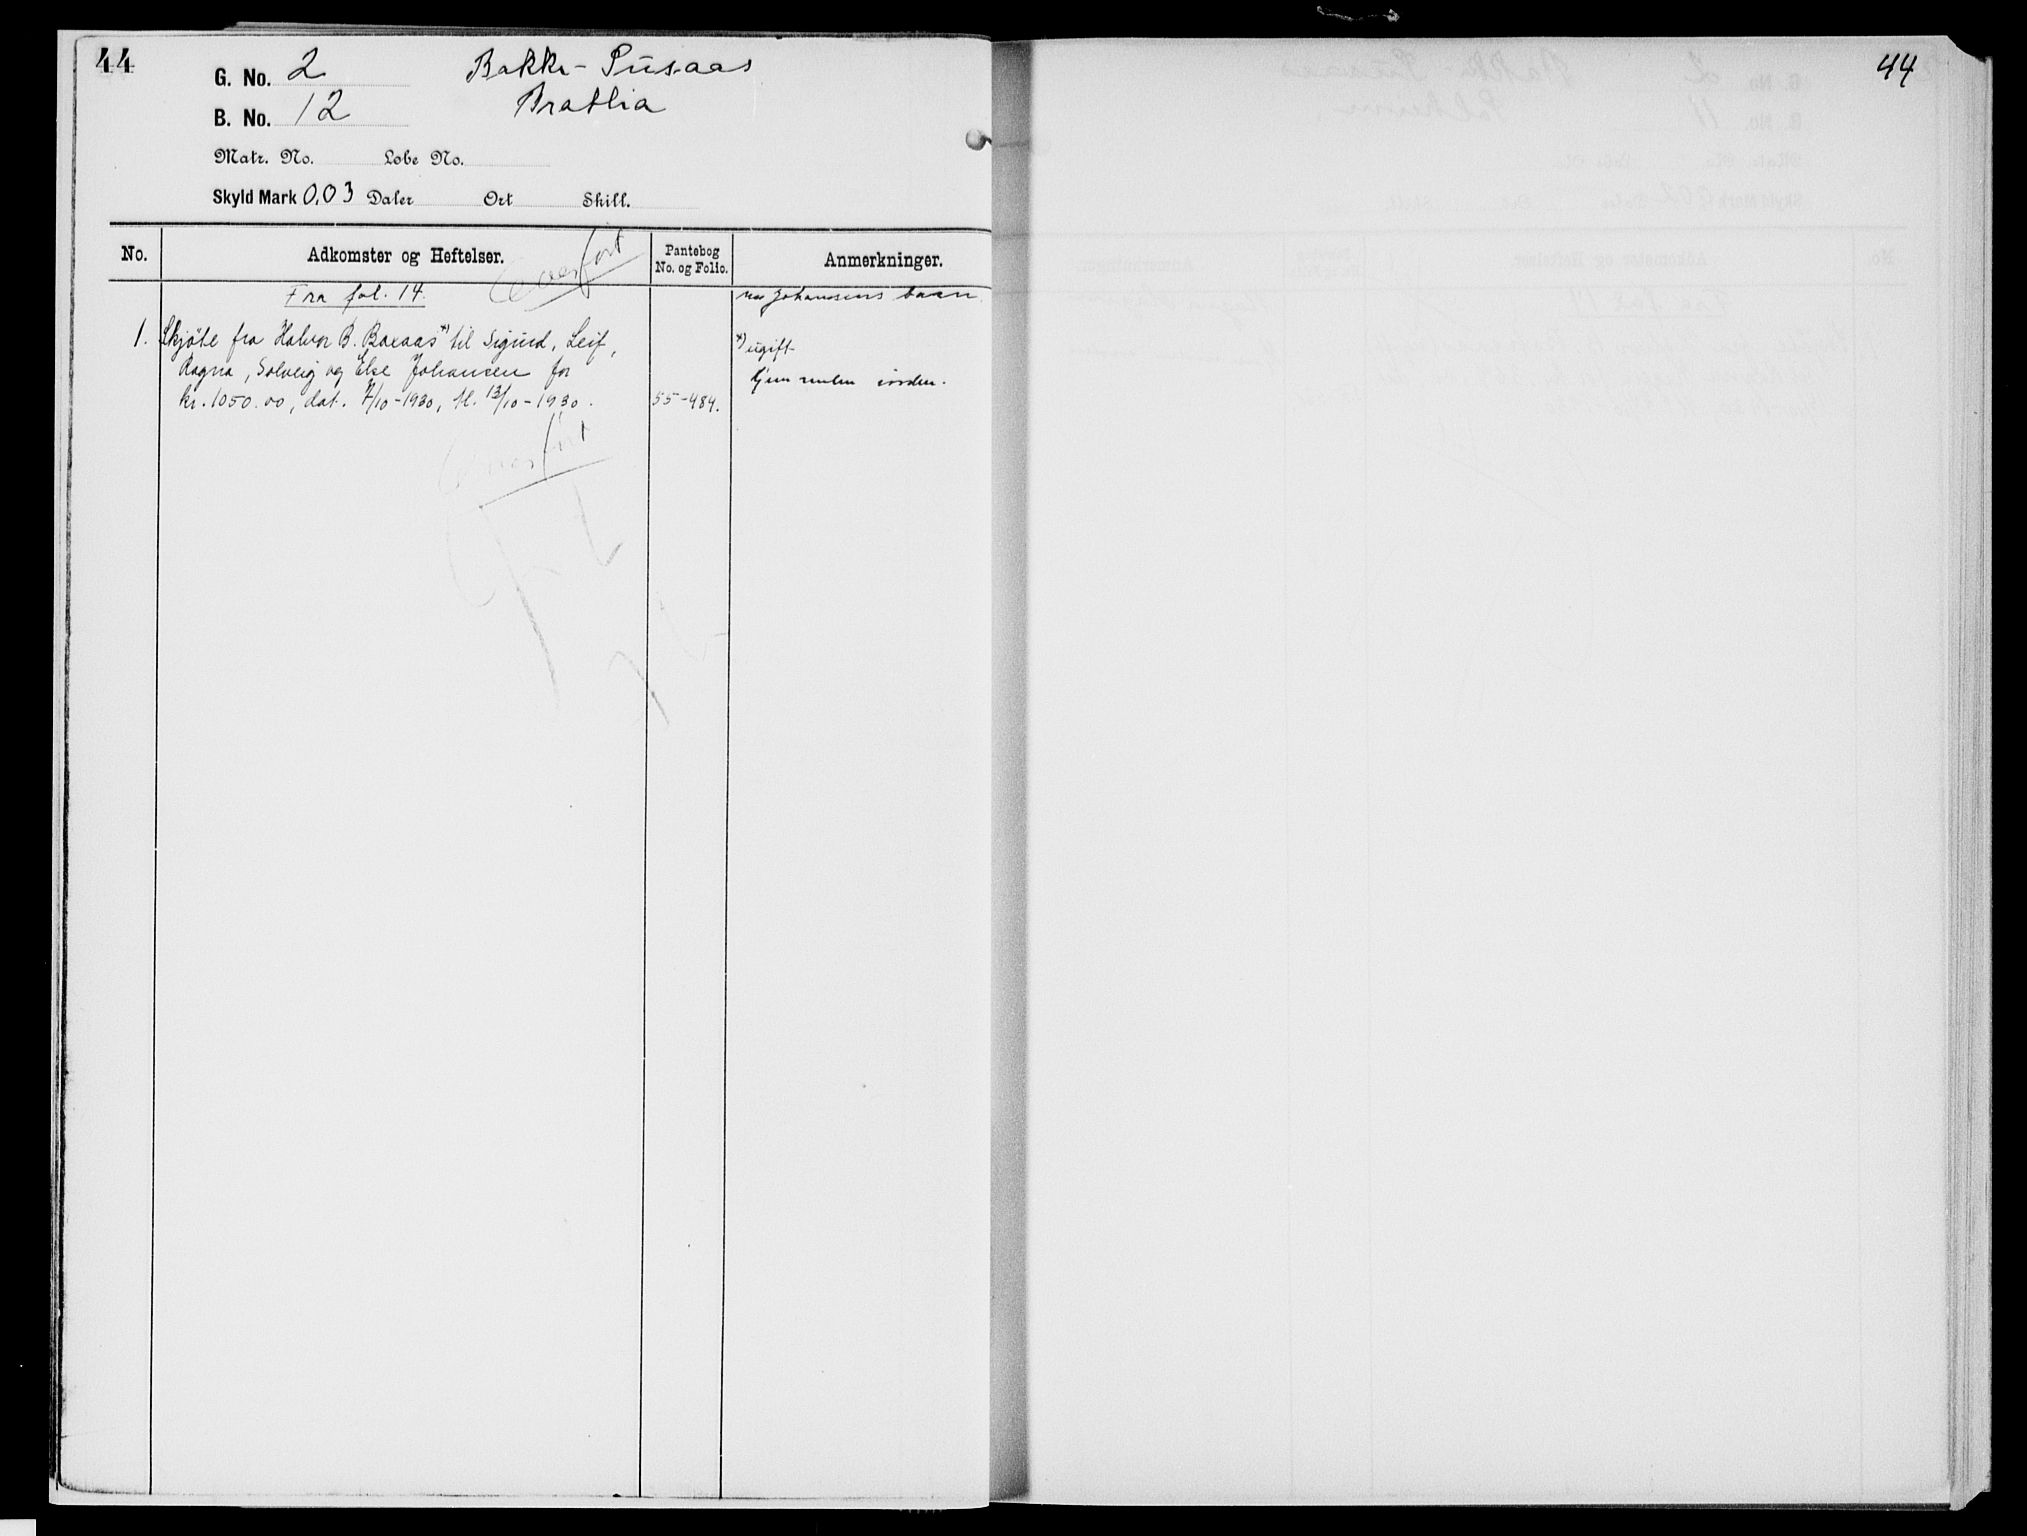 44
G. No. 2 Bakke-Pusaas
B. No. 12 Bratlia
Matr. No. Løbe No.
Skyld Mark 0,03 Daler Ort Skill.
No. Adkomster og Heftelser. Pantebog No. og Folio. Anmerkninger.
Overført
Fra fol. 14. Johansens
1. Skjöte fra Halvor B. Boxaas *) til Sigurd, Leif, *) ugift
Ragna, Solveig og Else Johansen for
kr. 1050.00, dat. 7/10-1930, tl. 13/10-1930. 55-484.
Overført
44